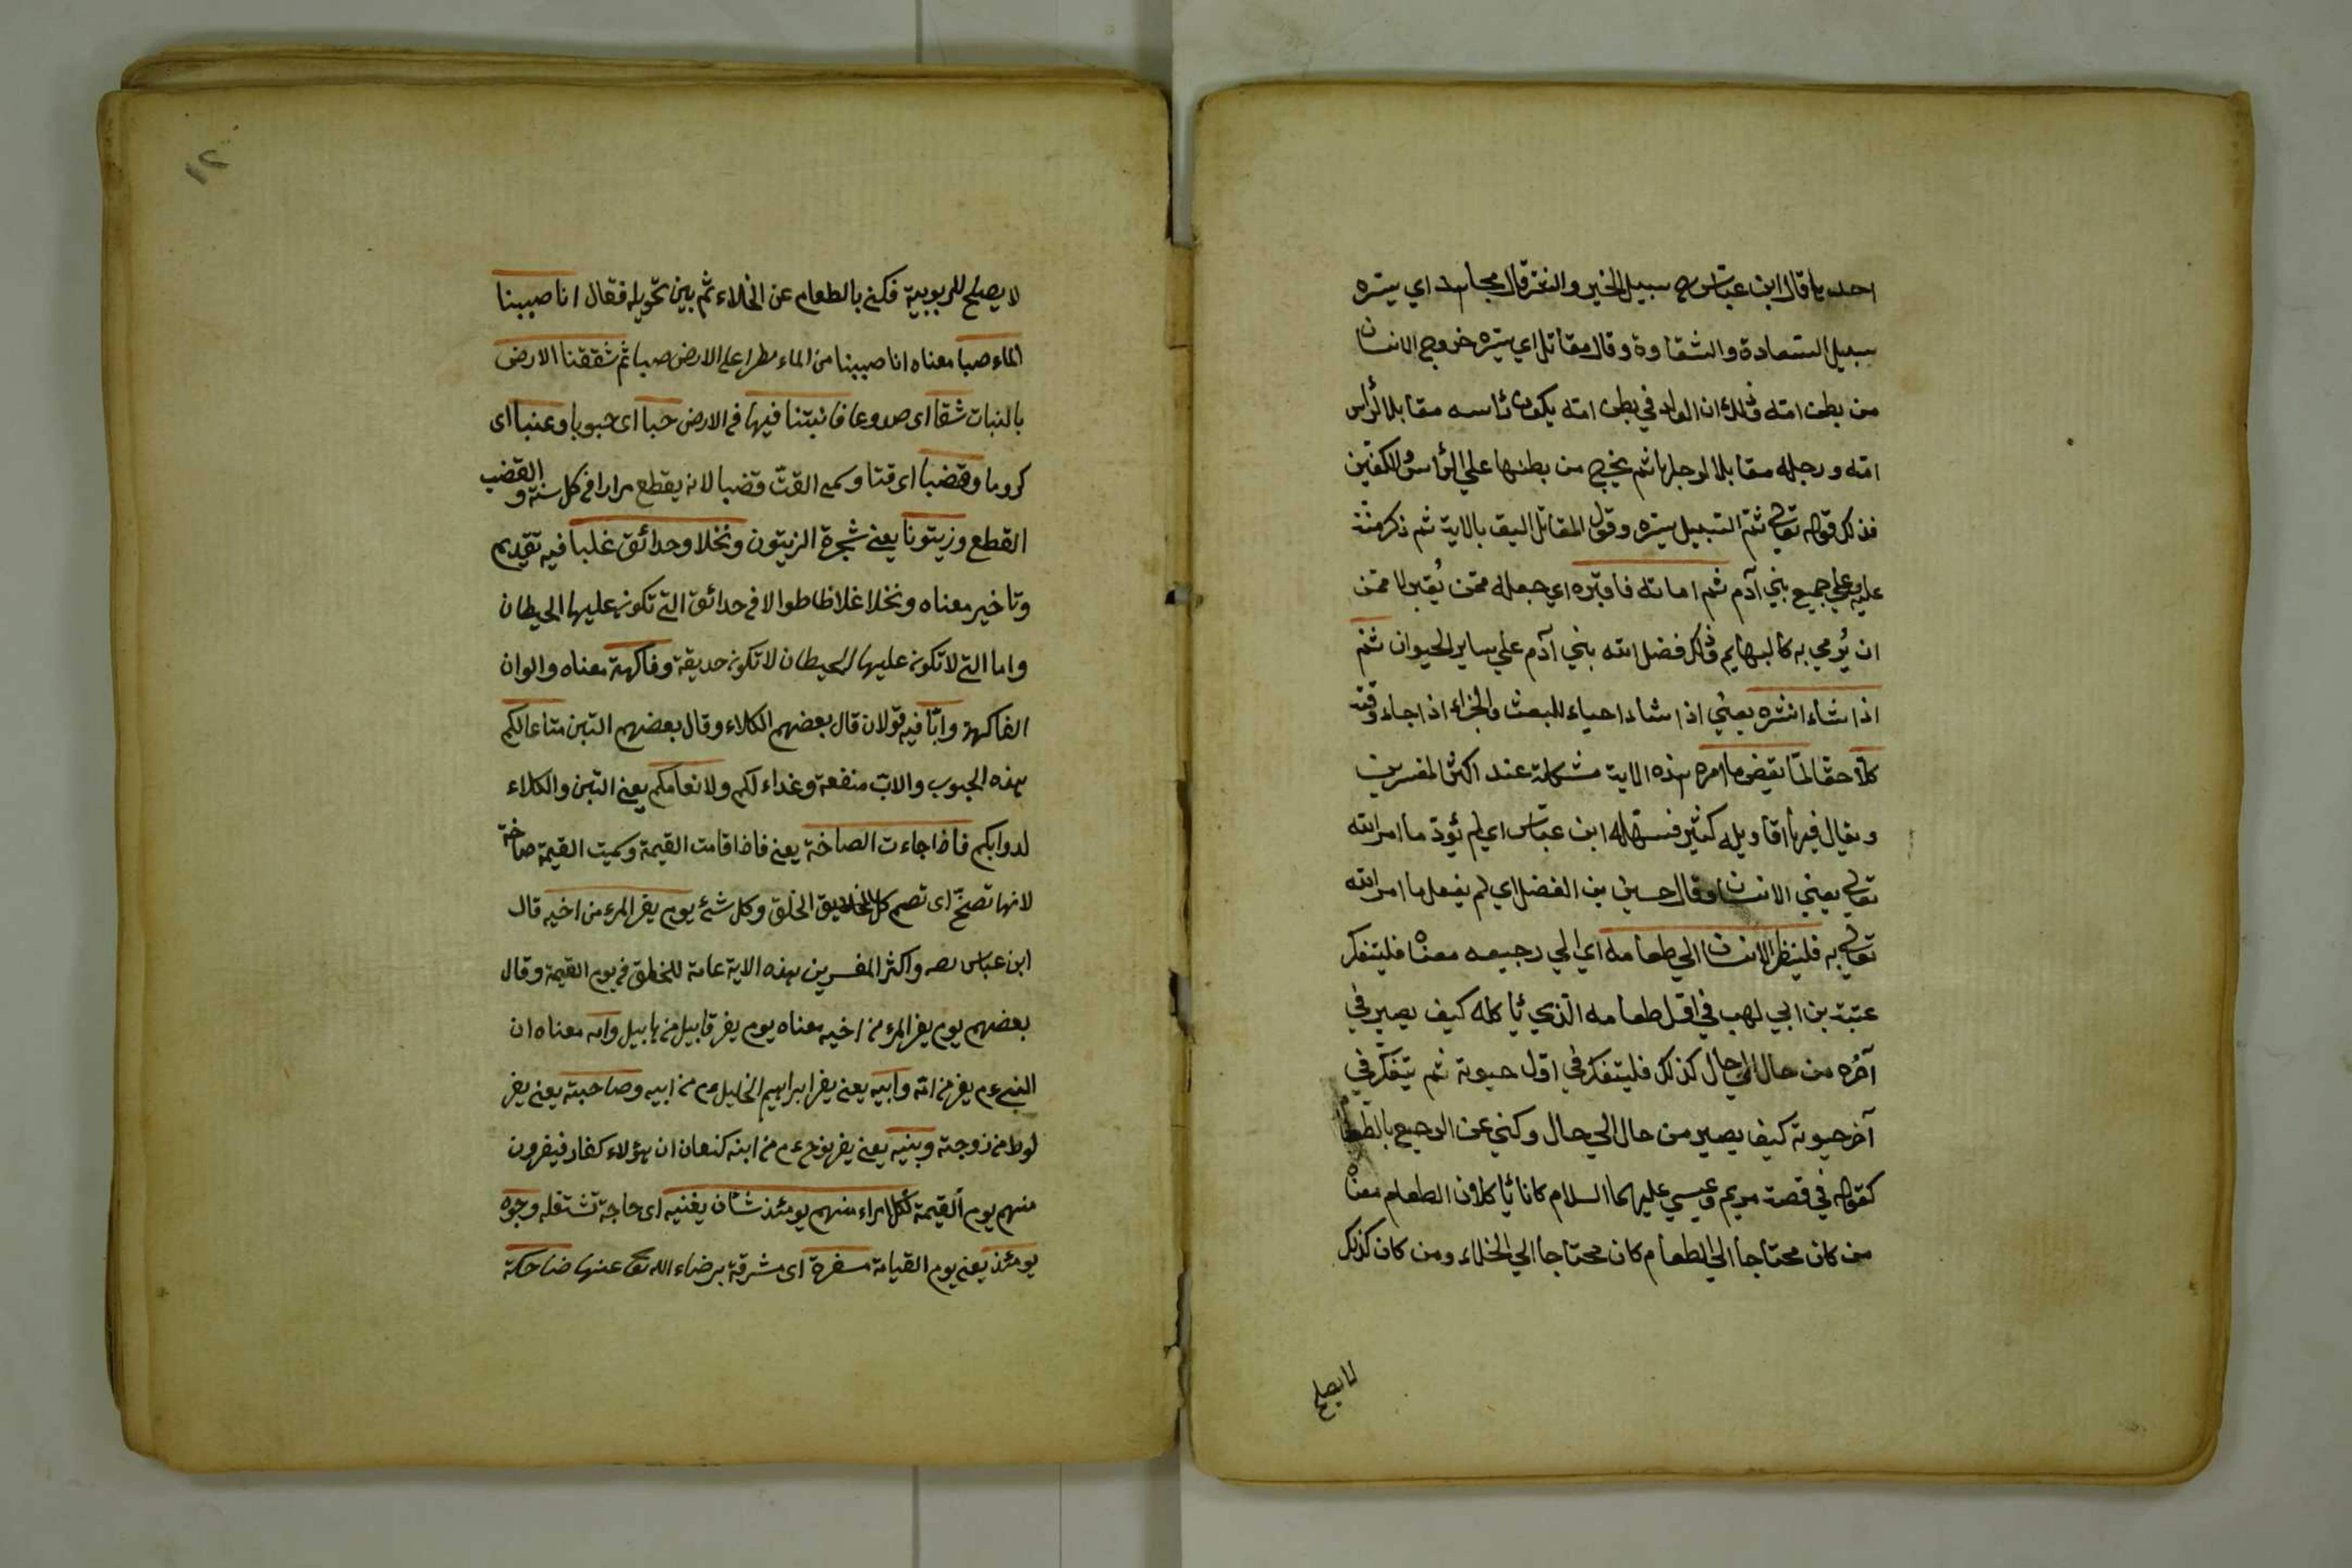 احديها قال ابن عباس رض سبيل الخير والشر قال مجاهد اي يسّره
سبيل السّعادة والشقاوة وقال مقاتل اي يسّره خروج الانسان
من بطن امّه وذلك ان الولد في بطن امّه يكون رأسه مقابلا لرأس
امّه ورجله مقابلا لرجلها ثم يخرج من بطنها علي الرأس والكفين
فذلك قوله تعالى ثمّ السّبيل يسّره وقول المقاتل اليق بالاية ثم ذكر منّته
عليه وعلي جميع بني آدم ثم اماته فاقبره اي جعله ممّن يُقبر لا ممّن
ان يُرمي به كالبهايم وذلك فضل الله بني آدم علي ساير الحيوان ثمّ
اذا شاء انشره يعني اذا شاء احياء للبعث والجزاء اذا جاء وقته
كلّا حقا لمّا يقض ما امره هذه الاية مشكلة عند اكثر المفسرين
ويقال فيها اقاويله كثير فسّر له ابن عباس اي لم يؤدّ ما امر الله
تعالى يعني الانسان وقال حسين بن الفضل اي لم يفعل ما امر الله
تعالى به فلينظر الانسان الي طعامه اي الي رجيعه معناه فليتفكر
عتبة بن ابي لهب في اوّل طعامه الّذي يأكله كيف يصير في
آخره من حال الي حال كذلك فليتفكر في اول حيوته ثم يتفكّر في
آخر حيوته كيف يصير من حال الي حال وكني عن الرجيع بالطعام
كقوله في قصة مريم وعيسي عليهما السلام كانا يأكلان الطعام معناه
من كان محتاجا الي الطعام كان محتاجا الي الخلاء ومن كان كذلك
لا يصلح
١٢
لا يصلح للربوبية فكنى بالطعام عن الخلاء ثم بين تحويله فقال انا صببنا
الماء صبا معناه انا صببنا من الماء مطرا على الارض صبا ثم شققنا الارض
بالنبات شقا اى صدوعا فانبتنا فيها فى الارض حبا اى حبوبا وعنبا اى
كروما وقضبا اى قتا وسمى القتّ قضبا لانه يقطع مرارا فى كل سنة والقضب
القطع وزيتونا يعنى شجرة الزيتون ونخلا وحدائق غلبا فيه تقديم
وتاخير معناه ونخلا غلاظا طوالا فى حدائق التى تكون عليها الحيطان
واما التى لا تكون عليها الحيطان لا تكون حديقة وفاكهة معناه والوان
الفاكهة وابّا فيه قولان قال بعضهم الكلاء وقال بعضهم التبن متاعا لكم
بهذه الحبوب والابّ منفعة وغداء لكم ولانعامكم يعنى التبن والكلاء
لدوابكم فاذا جاءت الصاخة يعنى فاذا قامت القيمة وسميت القيمة صاخة
لانها تصخّ اى تصم كل الخلايق الخلق وكل شئ يوم يفر المرء من اخيه قال
ابن عباس رضه واكثر المفسرين بهذه الاية عامة للخلق فى يوم القيمة وقال
بعضهم يوم يفر المرء من اخيه معناه يوم يفر قابيل من هابيل وامه معناه ان
النبى عم يفر من امّه وابيه يعنى يفر ابراهيم الخليل عم من ابيه وصاحبته يعنى يفر
لوط من زوجته وبنيه يعنى يفر نوح عم من ابنه كنعان ان هؤلاء كفار فيفرون
منهم يوم القيمة لكل امراء منهم يومئذ شأن يغنيه اى حاجة تشتغله وجوه
يومئذ يعنى يوم القيامة مسفرة اى مشرقة برضاء الله تعا عنها ضاحكة